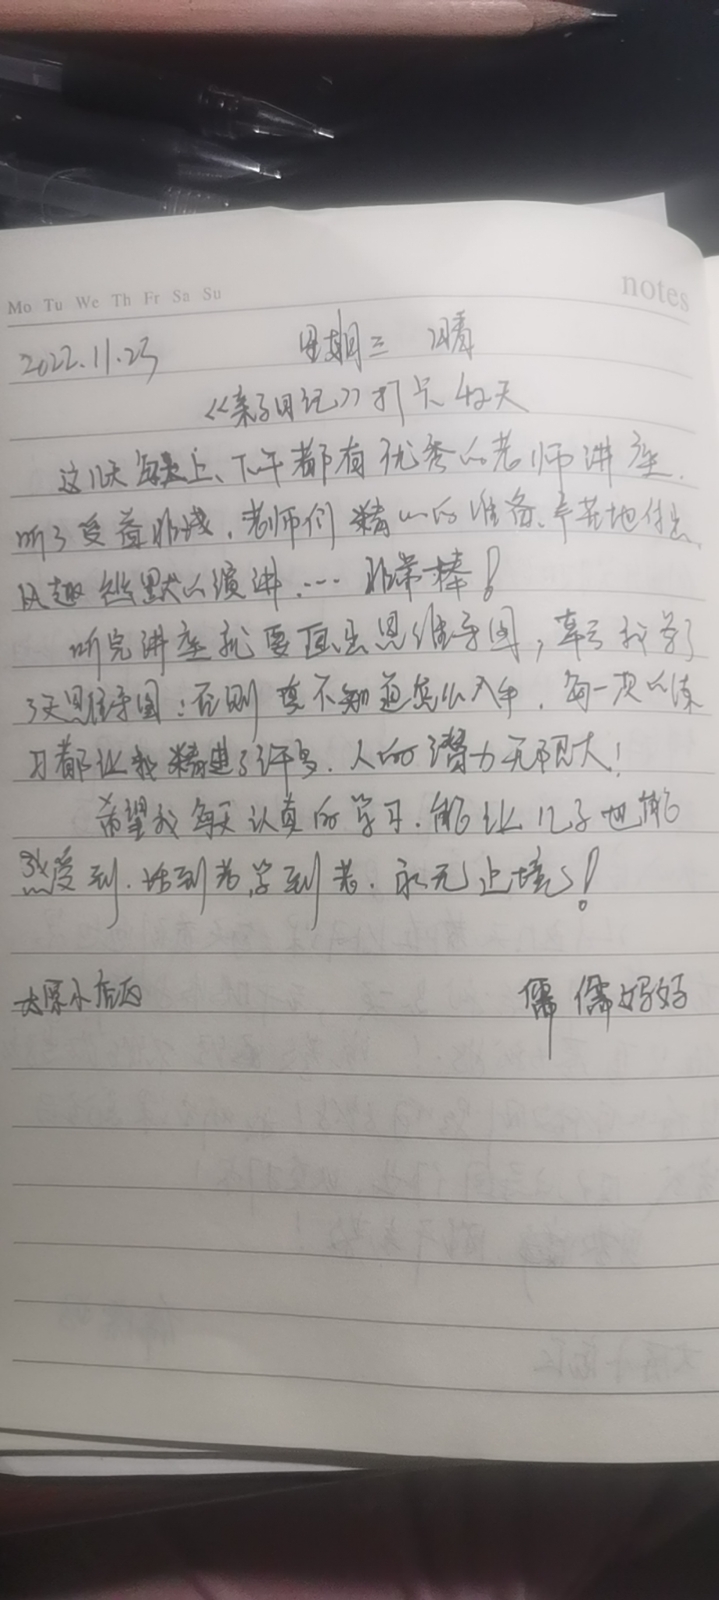 notes
Mo Tu We Th Fr Sa Su
2022.11.23 星期三 晴
《亲子日记》打卡42天
这几天每天上、下午都有优秀的老师讲座.
听了受益非浅.老师们精心的准备、辛苦地付出、
风趣幽默的演讲.… 非常棒!
听完讲座就要画出思维导图,幸亏我学了
3天思维导图;否则真不知道怎么入手.每一次的练
习都让我精进了许多.人的潜力无限大!
希望我每天认真的学习.能让儿子也能
感受到.活到老,学到老.永无止境!
太原小店区 儒儒妈妈